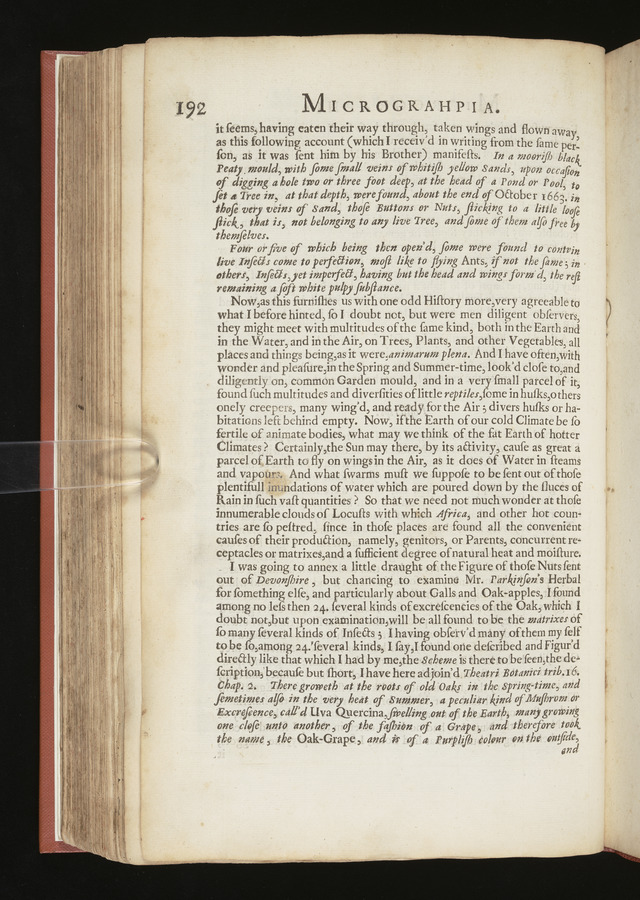 192 MICROGRAHPIA.
it ſeems, having eaten their way through, taken wings and flown away,
as this following account (which I receiv'd in writing from the ſame per-
ſon, as it was ſent him by his Brother) manifeſts. In a mooriſh black
Peaty mould, with ſome ſmall veins of whitiſh yellow Sands, upon occaſion
of digging a hole two or three foot deep, at the head of a Pond or Pool, to
ſet a Tree in, at that depth, were found, about the end of October 1663. in
thoſe very veins of Sand, thoſe Buttons or Nuts, ſticking to a little looſe
ſtick, that is, not belonging to any live Tree, and ſome of them alſo free by
themſelves.
Four or five of which being then open'd, ſome were found to contein
live Inſects come to perfection, moſt like to flying Ants, if not the ſame; in
others, Inſects, yet imperfect, having but the head and wings form'd, the reſt
remaining a ſoft white pulpy ſubſtance.
Now, as this furniſhes us with one odd Hiſtory more, very agreeable to
what I before hinted, ſo I doubt not, but were men diligent obſervers,
they might meet with multitudes of the ſame kind, both in the Earth and
in the Water, and in the Air, on Trees, Plants, and other Vegetables, all
places and things being, as it were, animarum plena. And I have often, with
wonder and pleaſure, in the Spring and Summer-time, look'd cloſe to, and
diligently on, common Garden mould, and in a very ſmall parcel of it,
found ſuch multitudes and diverſities of little reptiles, ſome in huſks, others
onely creepers, many wing'd, and ready for the Air; divers huſks or ha-
bitations left behind empty. Now, if the Earth of our cold Climate be ſo
fertile of animate bodies, what may we think of the fat Earth of hotter
Climates? Certainly, the Sun may there, by its activity, cauſe as great a
parcel of Earth to fly on wings in the Air, as it does of Water in ſteams
and vapours. And what ſwarms muſt we ſuppoſe to be ſent out of thoſe
plentifull inundations of water which are poured down by the ſluces of
Rain in ſuch vaſt quantities? So that we need not much wonder at thoſe
innumerable clouds of Locuſts with which Africa, and other hot coun-
tries are ſo peſtred, ſince in thoſe places are found all the convenient
cauſes of their production, namely, genitors, or Parents, concurrent re-
ceptacles or matrixes, and a ſufficient degree of natural heat and moiſture.
I was going to annex a little draught of the Figure of thoſe Nuts ſent
out of Devonſhire, but chancing to examine Mr. Parkinſon's Herbal
for ſomething elſe, and particularly about Galls and Oak-apples, I found
among no leſs then 24. ſeveral kinds of excreſcencies of the Oak, which I
doubt not, but upon examination, will be all found to be the matrixes of
ſo many ſeveral kinds of Inſects; I having obſerv'd many of them my ſelf
to be ſo, among 24. ſeveral kinds, I ſay, I found one deſcribed and Figur'd
directly like that which I had by me, the Scheme is there to be ſeen, the de-
ſcription, becauſe but ſhort, I have here adjoin'd Theatri Botanici trib. 16.
Chap. 2. There groweth at the roots of old Oaks in the Spring-time, and
ſemetimes alſo in the very heat of Summer, a peculiar kind of Muſhrom or
Excreſcence, call'd Uva Quercina, ſwelling out of the Earth, many growing
one cloſe unto another, of the faſhion of a Grape, and therefore took
the name, the Oak-Grape, and is of a Purpliſh colour on the outſide,
and